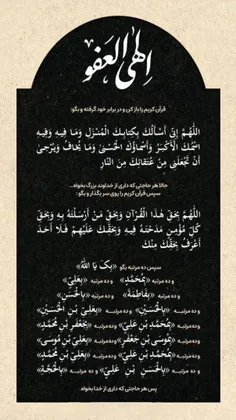 الهی العفو
قرآن کریم را باز کن و در برابر خود گرفته و بگو:
اَللَّهُمَّ إِنِّي أَسْأَلُكَ بِكِتَابِكَ الْمُنْزَلِ وَمَا فِيهِ وَفِيهِ
اسْمُكَ الْأَكْبَرُ وَأَسْمَاؤُكَ الْحُسْنَىٰ وَمَا يُخَافُ وَيُرْجَىٰ
أَنْ تَجْعَلَنِي مِنْ عُتَقَائِكَ مِنَ النَّارِ
حالا هر حاجتی که داری از خداوند بزرگ بخواه...
سپس قرآن کریم را روی سر بگذار و بگو:
اَللَّهُمَّ بِحَقِّ هَٰذَا الْقُرْآنِ وَبِحَقِّ مَنْ أَرْسَلْتَهُ بِهِ وَبِحَقِّ
كُلِّ مُؤْمِنٍ مَدَحْتَهُ فِيهِ وَبِحَقِّكَ عَلَيْهِمْ فَلَا أَحَدَ
أَعْرَفُ بِحَقِّكَ مِنْكَ
سپس ده مرتبه بگو «بِكَ يَا اَللَّهُ»
و ده مرتبه «بِمُحَمَّدٍ» و ده مرتبه «بِعَلِيٍّ»
و ده مرتبه «بِفَاطِمَةَ» و ده مرتبه «بِالْحَسَنِ»
و ده مرتبه «بِالْحُسَيْنِ» و ده مرتبه «بِعَلِيِّ بْنِ الْحُسَيْنِ»
و ده مرتبه «بِمُحَمَّدِ بْنِ عَلِيٍّ» و ده مرتبه «بِجَعْفَرِ بْنِ مُحَمَّدٍ»
و ده مرتبه «بِمُوسَى بْنِ جَعْفَرٍ» و ده مرتبه «بِعَلِيِّ بْنِ مُوسَى»
و ده مرتبه «بِمُحَمَّدِ بْنِ عَلِيٍّ» و ده مرتبه «بِعَلِيِّ بْنِ مُحَمَّدٍ»
و ده مرتبه «بِالْحَسَنِ بْنِ عَلِيٍّ» و ده مرتبه «بِالْحُجَّةِ»
پس هر حاجتی که داری از خدا بخواه.